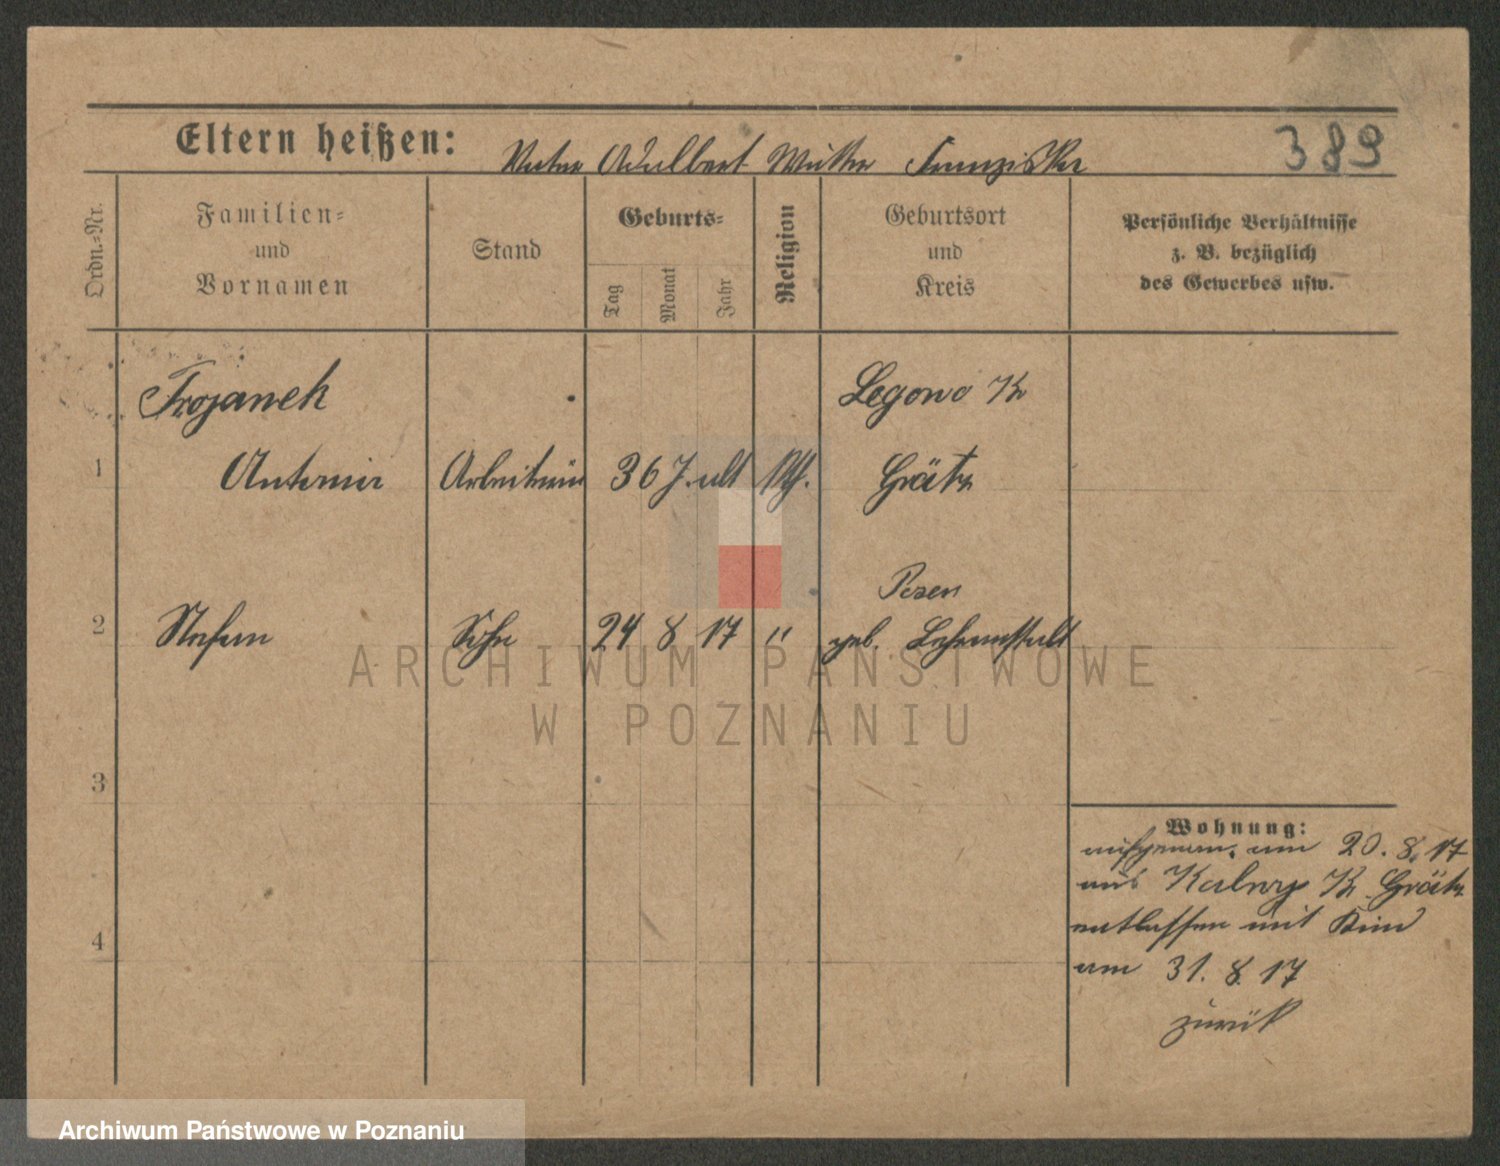 389
Eltern heißen: Vater Adalbert Mutter Franziska
Ordn.=Nr.
Familien=
und
Vornamen
Stand
Geburts=
Tag
Monat
Jahr
Religion
Geburtsort
und
Kreis
Persönliche Verhältnisse
z. B. bezüglich
des Gewerbes usw.
Trojanek
Legowo Kr
1 Antonie Arbeiterin 36 J. alt kth. Grätz
Posen
2 Stefan Sohn 24 8 17 " geb. Lehranstalt
3
4
Wohnung:
aufgenom. am 20. 8. 17
aus Kr Grätz
entlassen mit Kind
am 31. 8. 17
zurük
ARCHIWUM PAŃSTWOWE
W POZNANIU
Archiwum Państwowe w Poznaniu